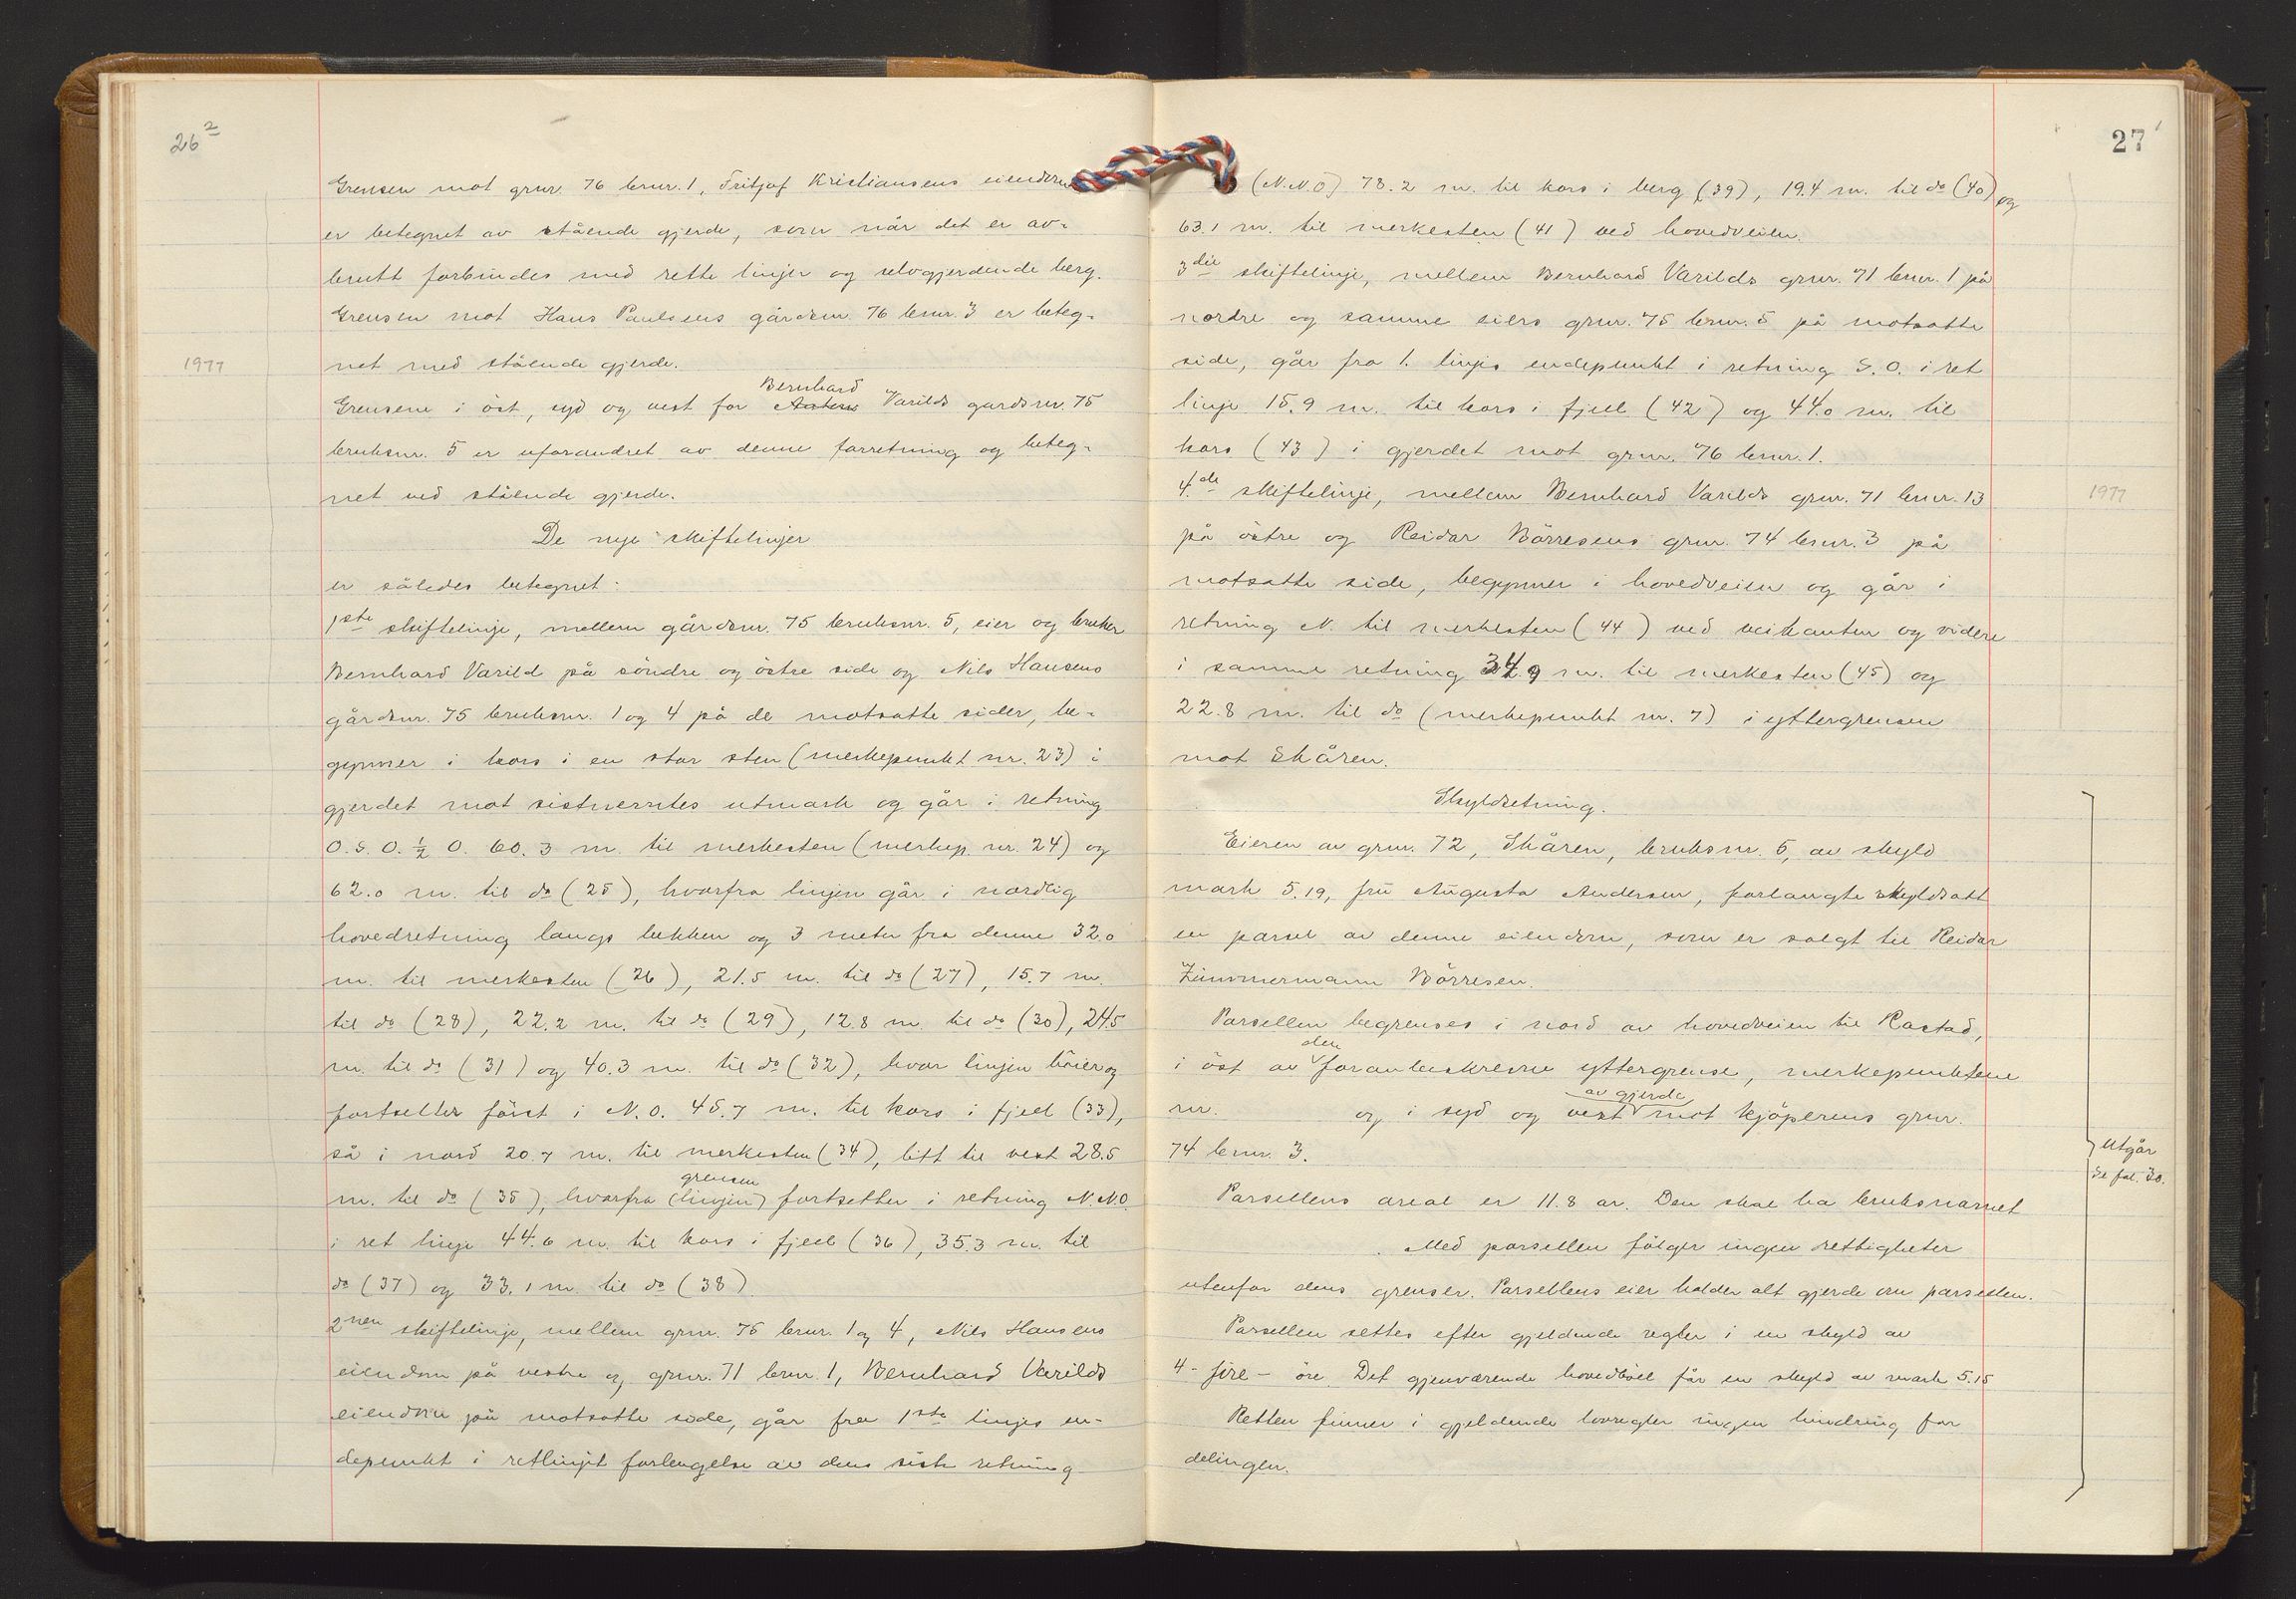 26²
Grensen mot grnr. 76 brnr. 1, Fritjof Kristiansens eiendom
er betegnet av stående gjerde, som når det er av-
brutt forbindes med rette linjer og selvgjerdende berg.
Grensen mot Hans Paulsens gårdsnr. 76 brnr. 3 er beteg-
1977
net med stående gjerde.
Bernhard
Grensene i öst, syd og vest for Varilds gardsnr. 75
bruksnr. 5 er uforandret av denne forretning og beteg-
net ved stående gjerde.
De nye skiftelinjer
er således betegnet:
1ste skiftelinje, mellem gårdsnr. 75 bruksnr. 5, eier og bruker
Bernhard Varild på söndre og östre side og Nils Hansens
gårdsnr. 75 bruksnr. 1 og 4 på de motsatte sider, be-
gynner i kors i en stor sten (merkepunkt nr. 23) i
gjerdet mot sistnevntes utmark og går i retning
O.S.O. ½ O. 60.3 m. til merkesten (merkep. nr. 24) og
62.0 m. til do (25), hvorfra linjen går i nordlig
hovedretning langs bekken og 3 meter fra denne 32.0
m. til merkesten (26), 21.5 m. til do (27), 15.7 m.
til do (28), 22.2 m. til do (29), 12.8 m. til do (30), 24.5
m. til do (31) og 40.3 m. til do (32), hvor linjen böier og
fortsetter först i N.O. 45.7 m. til kors i fjell (33),
så i nord 20.7 m. til merkesten (34), litt til vest 28.5
grensen
m. til do (35), hvorfra (linjen) fortsetter i retning N.N.O.
i ret linje 44.6 m. til kors i fjell (36), 35.3 m. til
do (37) og 33.1 m. til do (38)
2nen skiftelinje, mellem grnr. 75 brnr. 1 og 4, Nils Hansens
eiendom på vestre og grnr. 71 brnr. 1, Bernhard Varilds
eiendom på motsatte side, går fra 1ste linjes en-
depunkt i retlinjet forlengelse av dens siste retning
27
(N.N.O) 78.2 m. til kors i berg (39), 19.4 m. til do (40) og
63.1 m. til merkesten (41) ved hovedveien.
3die skiftelinje, mellem Bernhard Varilds grnr. 71 brnr. 1 på
nordre og samme eiers grnr. 75 brnr. 5 på motsatte
side, går fra 1. linjes endepunkt i retning S.O. i ret
linje 15.9 m. til kors i fjell (42) og 44.0 m. til
kors (43) i gjerdet mot grnr. 76 brnr. 1.
4.de skiftelinje, mellem Bernhard Varilds grnr. 71 brnr. 13
1977
på östre og Reidar Börresens grnr. 74 brnr. 3 på
motsatte side, begynner i hovedveien og går i
retning N. til merkesten (44) ved veikanten og videre
i samme retning 34.9 m. til merkesten (45) og
22.8 m. til do (merkepunkt nr. 7) i yttergrensen
mot Skåren.
Skyldsetning.
Eieren av grnr. 72, Skåren, bruksnr. 5, av skyld
mark 5.19, fru Augusta Andersen, forlangte skyldsatt
en parsel av denne eiendom, som er solgt til Reidar
Zimmermann Börresen.
Parsellen begrenses i nord av hovedveien til Rastad,
den
i öst av foranbeskrevne yttergrense, merkepunktene
av gjerde
nr. og i syd og vest mot kjöperens grnr.
74 brnr. 3.
Utgår
Se fol. 30.
Parsellens areal er 11.8 ar. Den skal ha bruksnavnet
. Med parsellen fölger ingen rettigheter
utenfor dens grenser. Parsellens eier holder alt gjerde om parsellen.
Parsellen settes efter gjeldende regler i en skyld av
4 - fire - öre. Det gjenværende hovedböl får en skyld av mark 5.15
Retten finner i gjeldende lovregler ingen hindring for
delingen.